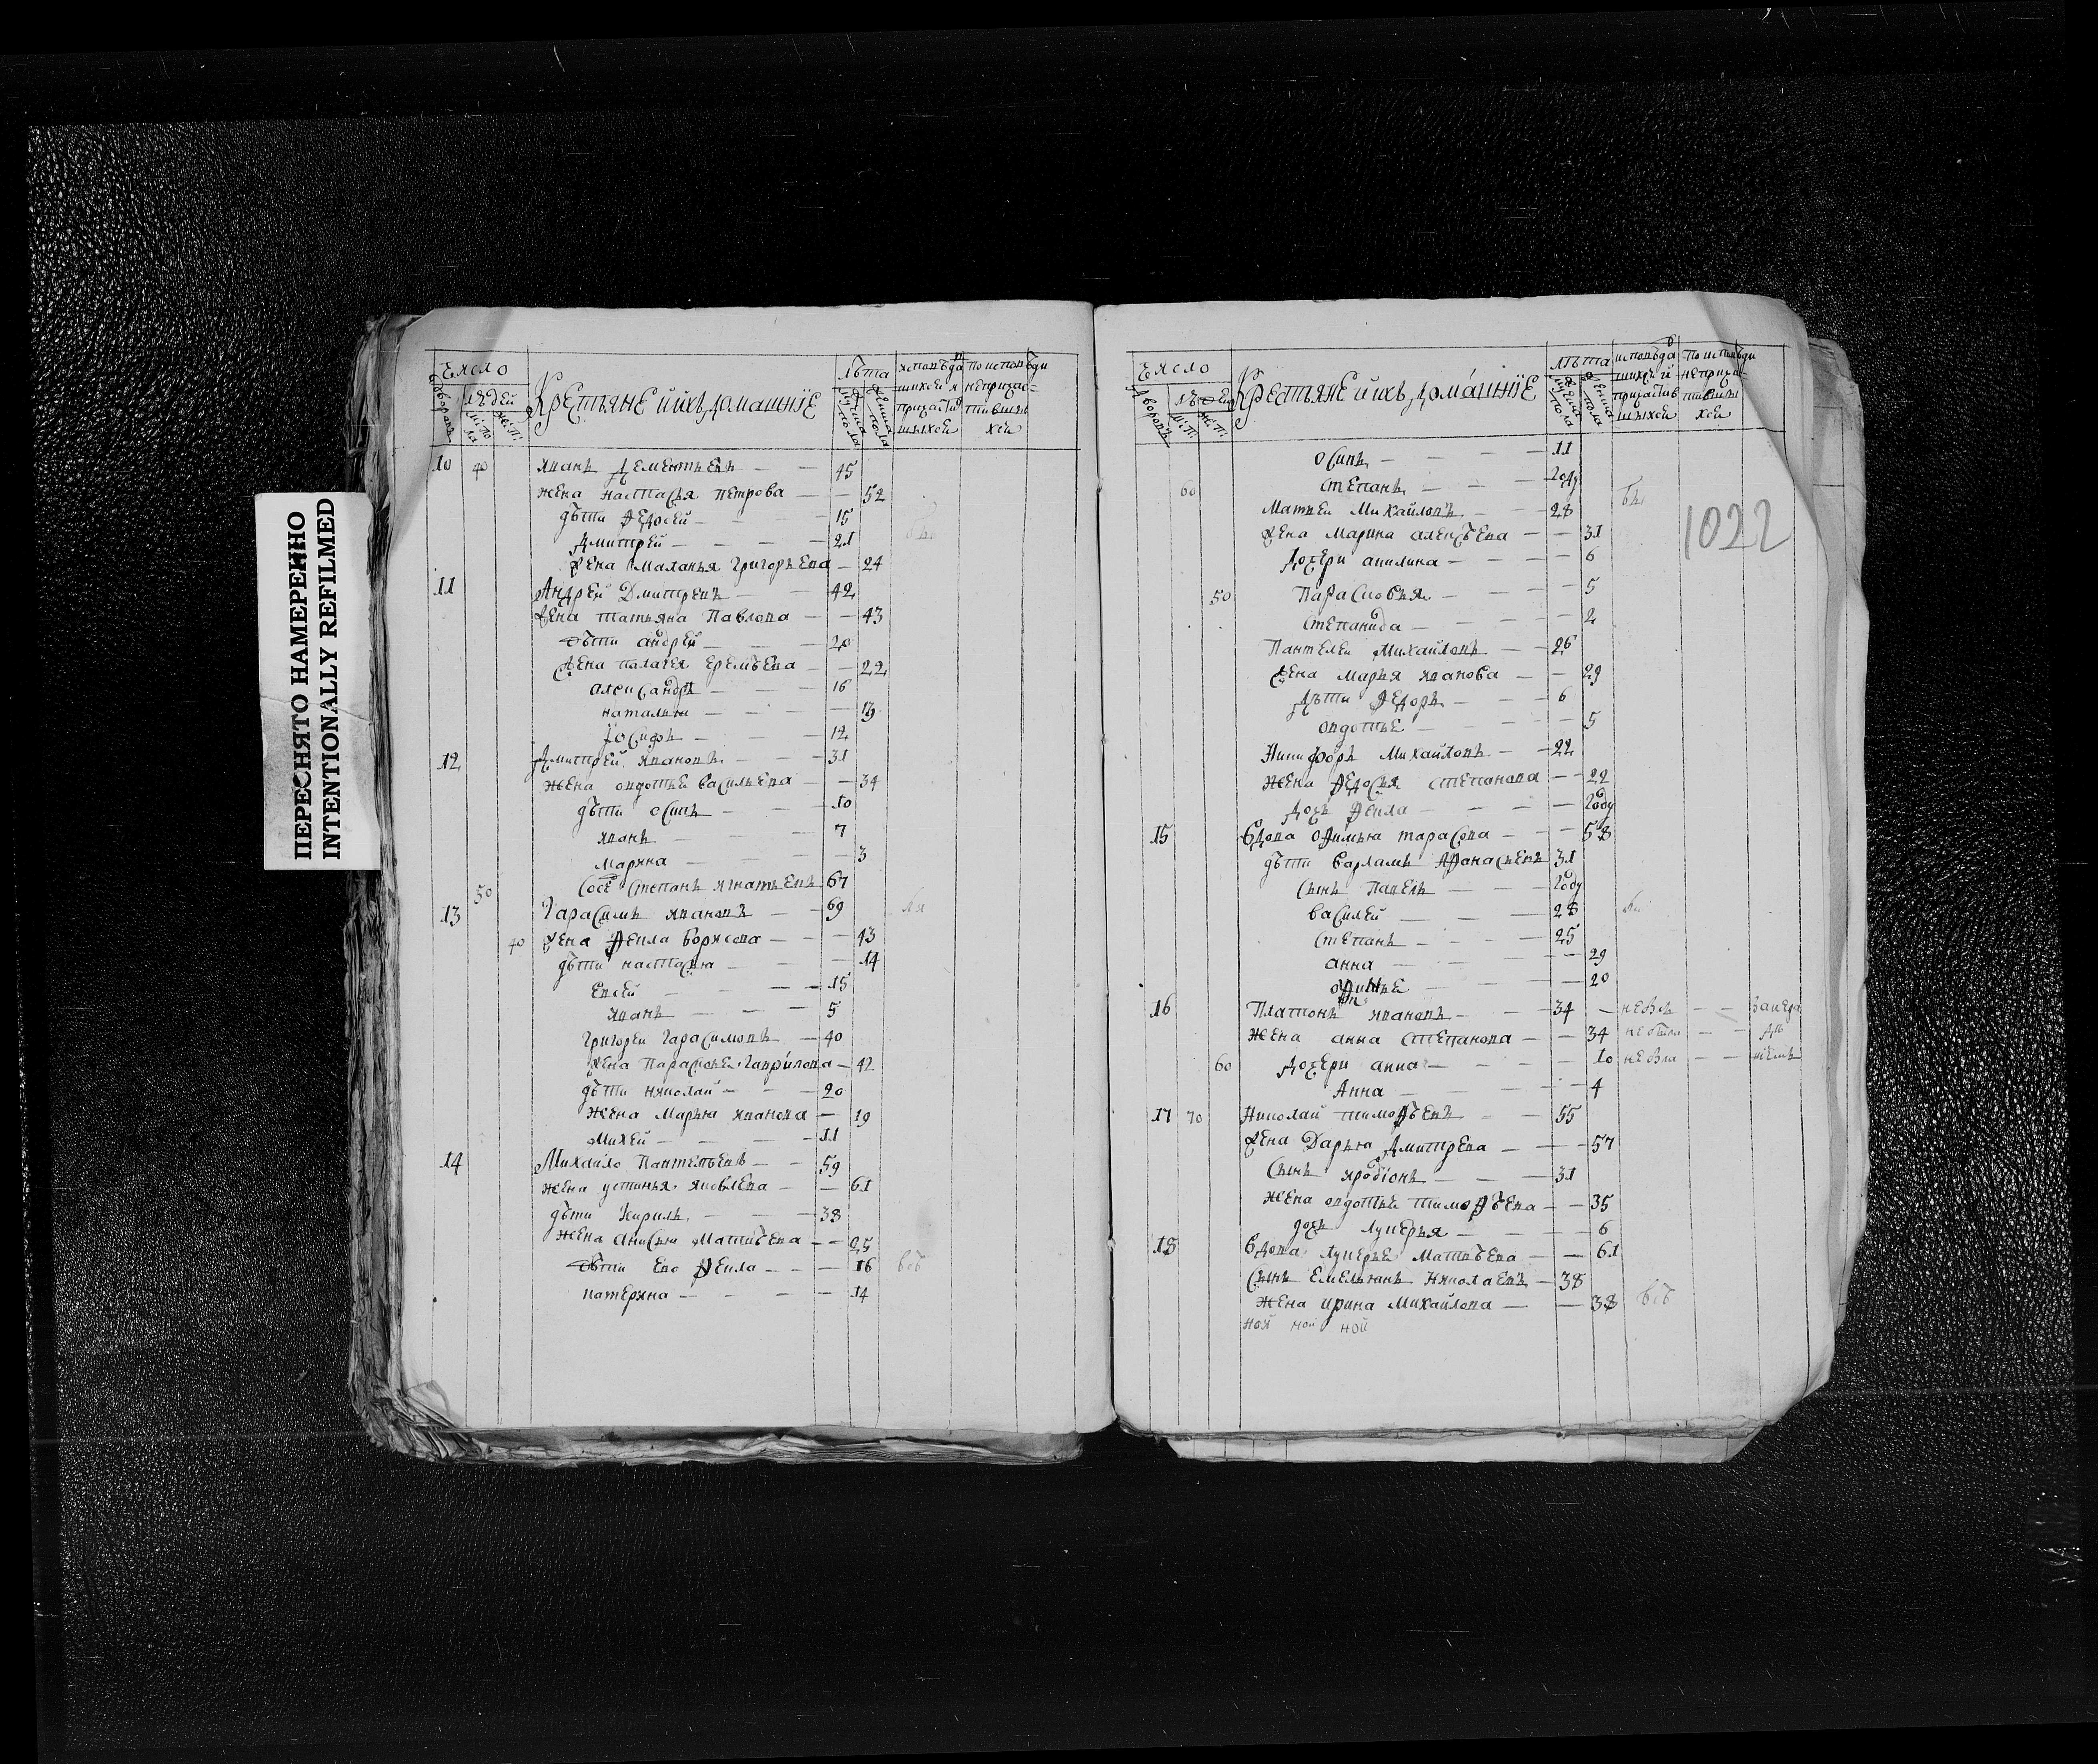 ПЕРЕСНЯТО НАМЕРЕННО
INTENTIONALLY REFILMED
Число
людей
Крестьяне и ихъ домашнїе
лѣта
10 40 иванъ Дементьевъ — — 45
жена настасья петрова — — 52
дѣти Ѳедосей — — 15
Дмитрей — — 21
жена маланья григорьева — 24
11 Андрей Дмитревъ — — 42
жена татьяна Павлова — — 43
дѣти андрей — — 20
жена палагея еремѣева — — 22
александръ — — 16
наталья — — 19
Їосифъ — — 12
12 Дмитрей ивановъ — — 31
жена овдотье васильева — — 34
дѣти осипъ — — 10
иванъ — — 7
марина — — 3
сосе Степанъ игнатьевъ 67
50
13 Гарасимъ ивановъ — — 69
40 жена Ѳекла борисова — — 43
дѣти настасья — — 14
— — 15
иванъ — — 5
григорей гарасимовъ — 40
жена Парасковье гаврилова — 42
дѣти николай — — 20
жена Марья иванова — 19
михей — — 11
14 Михайло Пантелѣевъ — — 59
жена устинья яковлева — — 61
дѣти Кирилъ — — 38
жена анисья Матвѣева — — 25
дѣти ево Ѳекла — — 16 всѣ
катерина — — 14
Число
Крестьяне и ихъ домашнїе
лѣта
осипъ — — 11
60 степанъ — — году
Матвей Михайловъ — — 28
1022
жена Марина алексѣева — — 31
дочери акилина — — 6
50 Парасковья — — 5
степанида — — 2
Пантелей Михайловъ — — 26
жена Марья иванова — — 29
дѣти Ѳедоръ — — 6
овдотье — — 5
Никифоръ Михайловъ — — 22
жена Ѳедосья степанова — — 22
дочь Ѳекла — — году
15 вдова офимья тарасова — — 58
дѣти варламъ Афанасьевъ 31
сынъ Павелъ — — году
василей — — 28
степанъ — — 25
анна — — 29
— — 20
16 Платонъ ивановъ — — 34
жена анна степанова — — 34
60 дочери анна — — 10
Анна — — 4
17 70 Николай тимоѲѣевъ — — 55
жена Дарья Дмитрева — — 57
сынъ иродїонъ — — 31
жена овдотье тимоѲѣева — — 35
дочь лукерья — — 6
18 вдова лукерье матвѣева — — 61
сынъ Емельянъ Николаевъ — 38
жена ирина михайлова — — 38 всѣ
ной ной ной